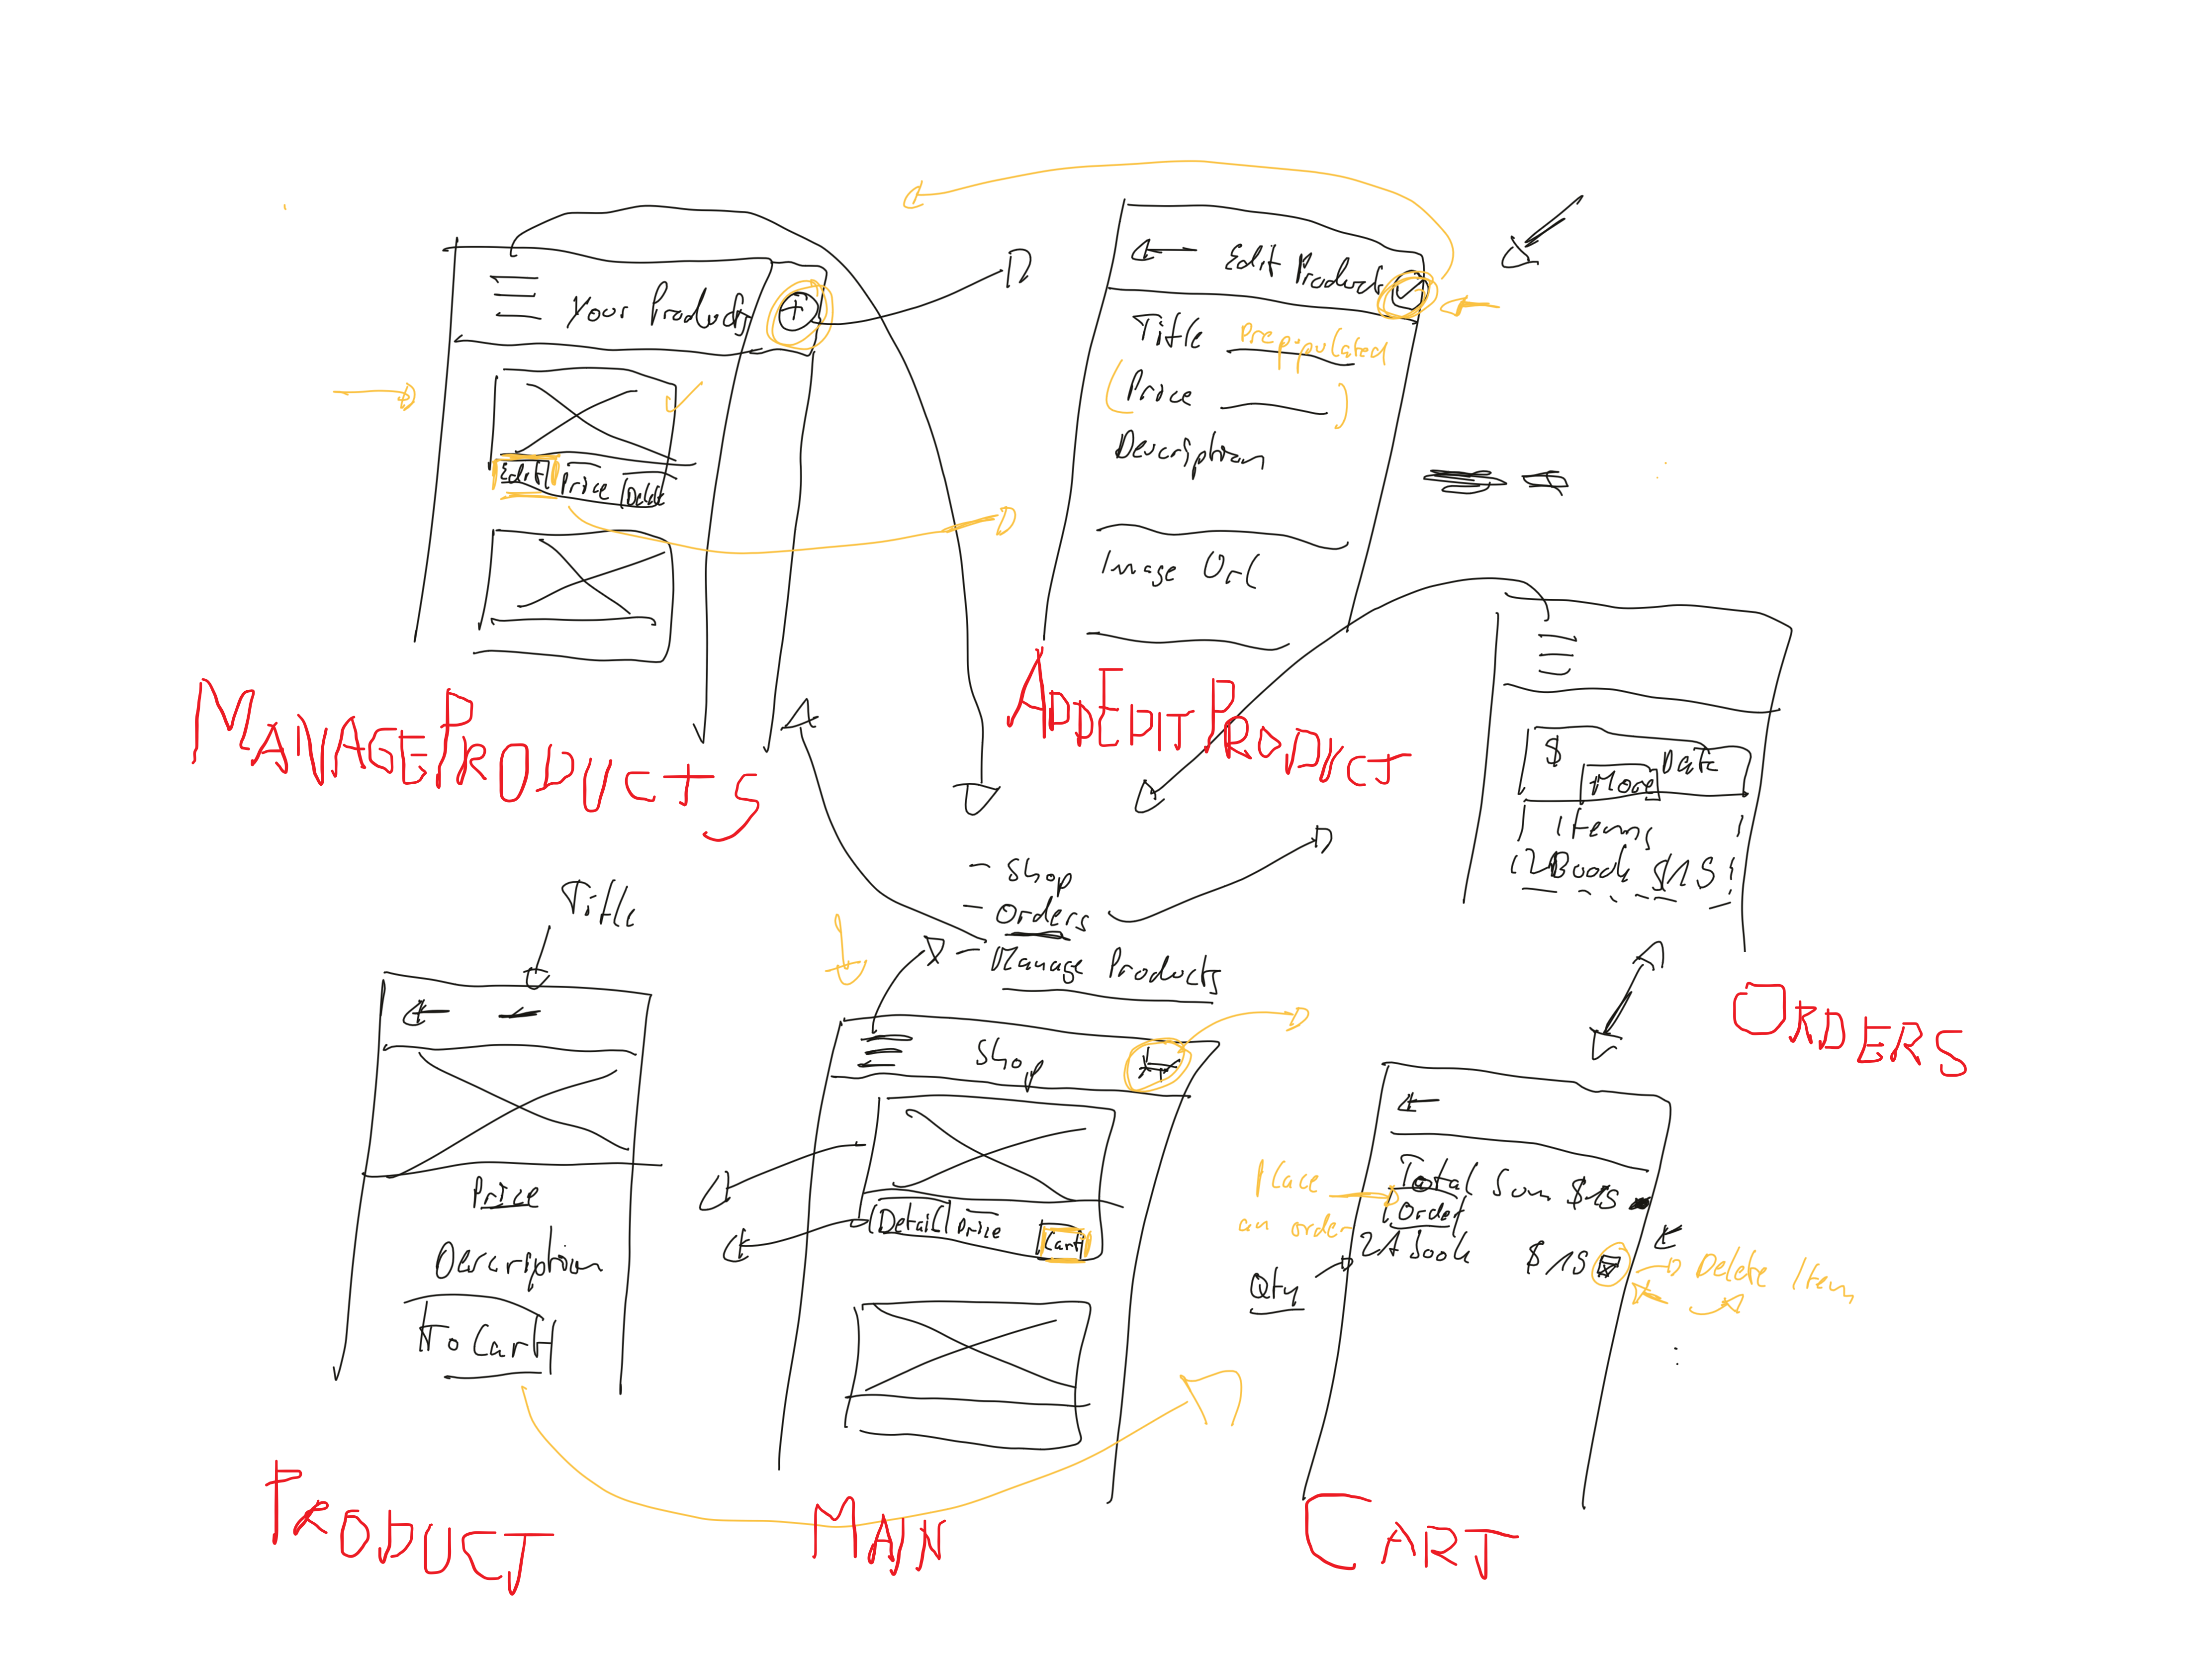 Your Products
+
Edit Price Delete
MANAGEPRODUCTS
Edit Product
Title Prepopulated
Price
Description
Image Url
ADDEDITPRODUCT
$ Date
More
Items
2 Book $15
ORDERS
- Shop
- Orders
- Manage Products
Title
Price
Description
To Cart
PRODUCT
Shop
Detail Price Cart
MAIN
Place
an order
Total Sum $15
Order
Qty
$15
Delete Item
CART